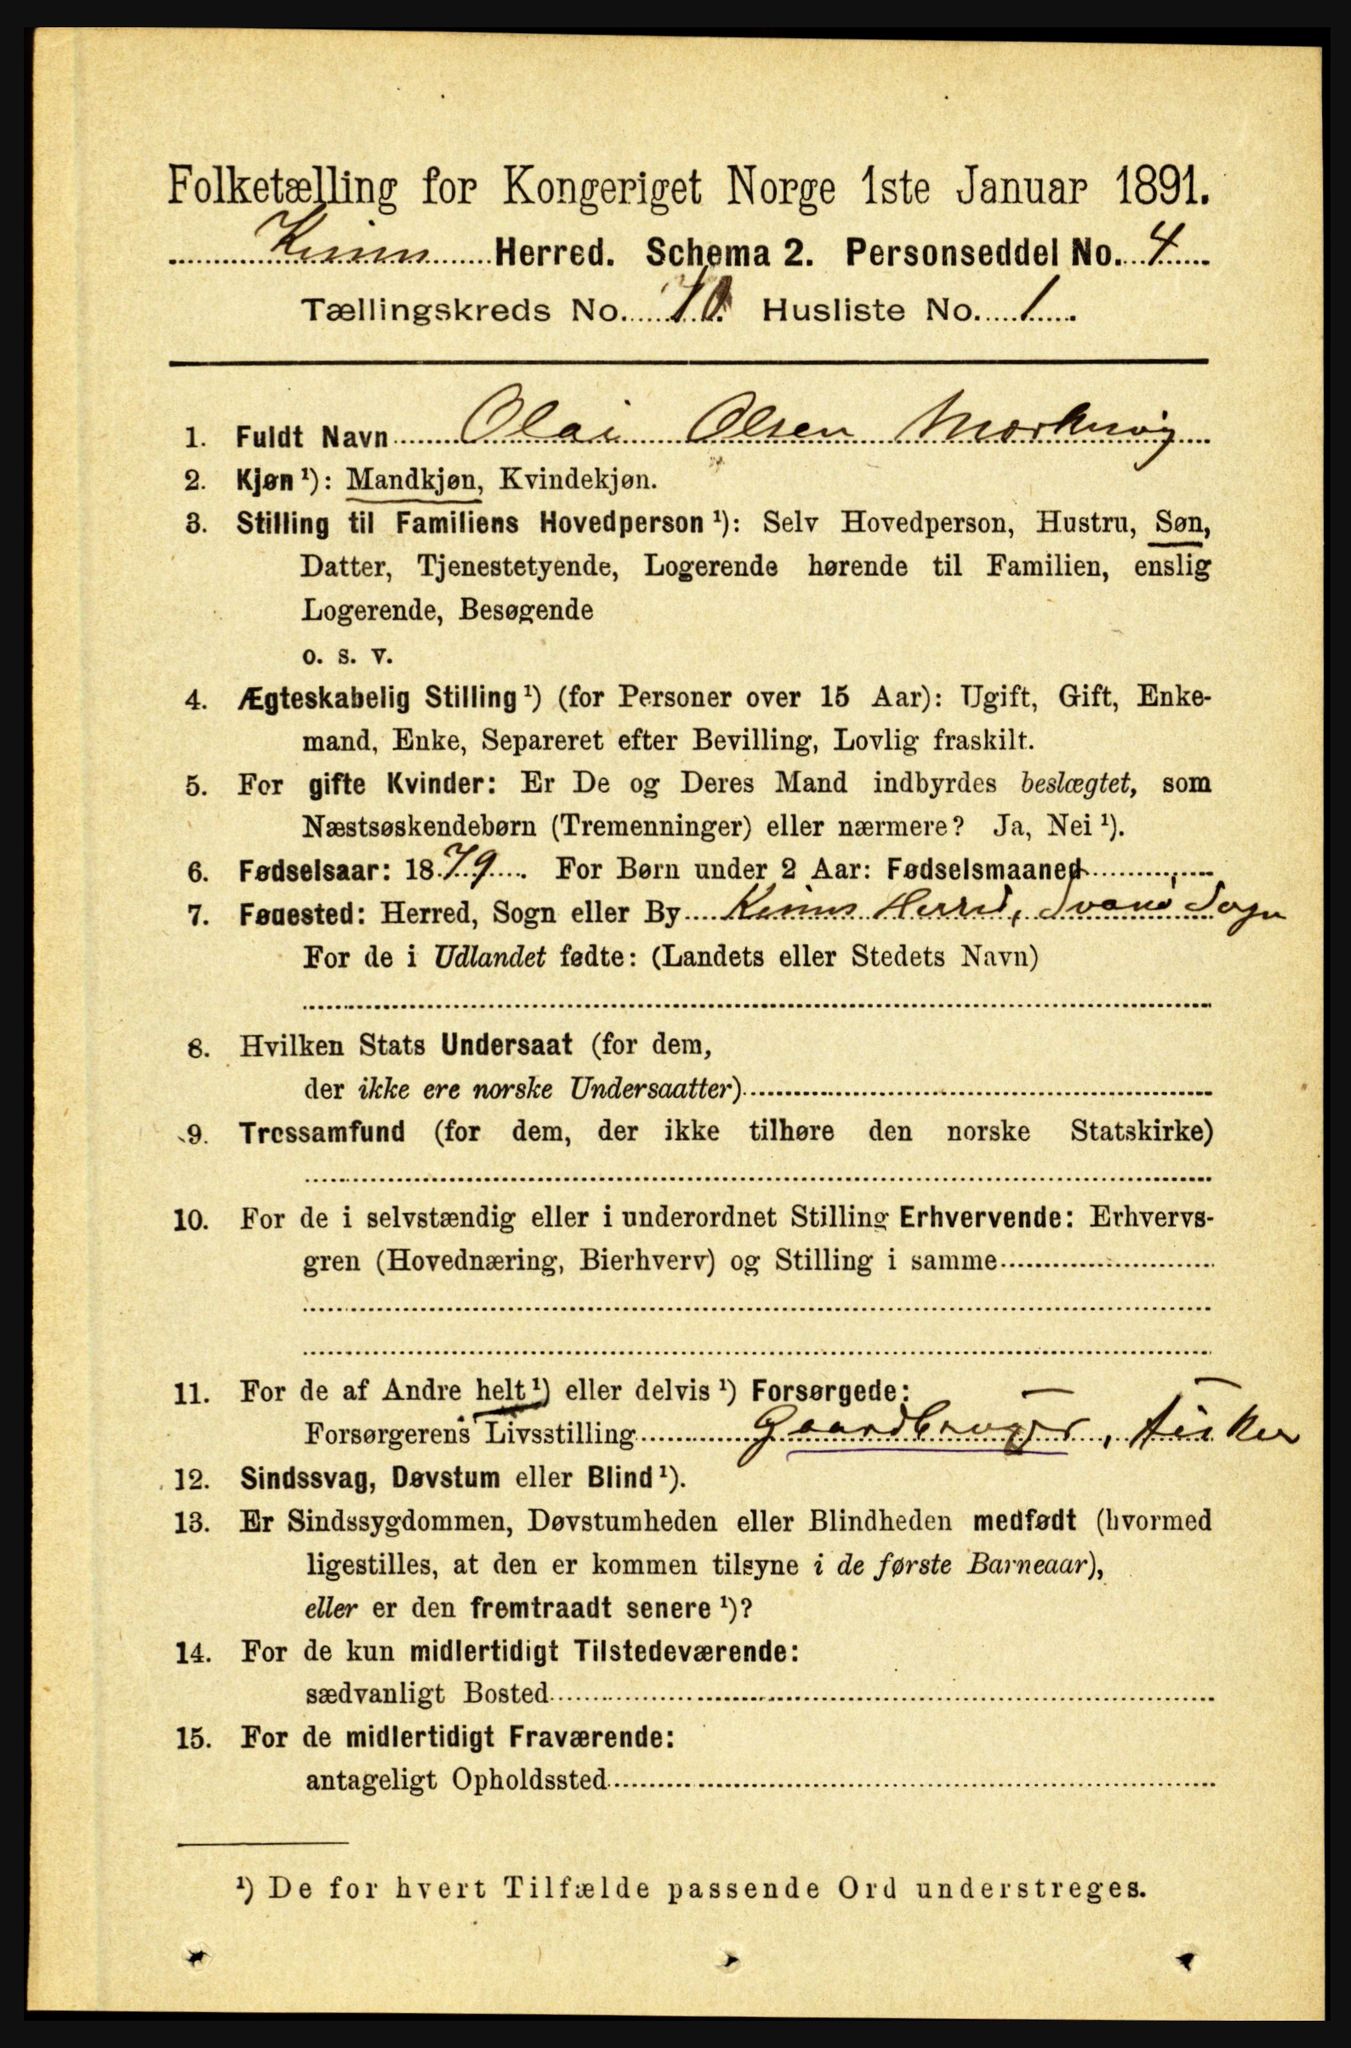 Folketælling for Kongeriget Norge 1ste Januar 1891.
Kinn Herred. Schema 2. Personseddel No. 4
Tællingskreds No. 10. Husliste No. 1
1. Fuldt Navn Olai Olsen Morkevig
2. Kjøn ¹): Mandkjøn, Kvindekjøn.
3. Stilling til Familiens Hovedperson ¹): Selv Hovedperson, Hustru, Søn,
Datter, Tjenestetyende, Logerende hørende til Familien, enslig
Logerende, Besøgende
o. s. v.
4. Ægteskabelig Stilling ¹) (for Personer over 15 Aar): Ugift, Gift, Enke-
mand, Enke, Separeret efter Bevilling, Lovlig fraskilt.
5. For gifte Kvinder: Er De og Deres Mand indbyrdes beslægtet, som
Næstsøskendebørn (Tremenninger) eller nærmere? Ja, Nei ¹).
6. Fødselsaar: 1879. For Børn under 2 Aar: Fødselsmaaned
7. Fødested: Herred, Sogn eller By Kinns Herred, Svanø Sogn
For de i Udlandet fødte: (Landets eller Stedets Navn)
8. Hvilken Stats Undersaat (for dem,
der ikke ere norske Undersaatter)
9. Trossamfund (for dem, der ikke tilhøre den norske Statskirke)
10. For de i selvstændig eller i underordnet Stilling Erhvervende: Erhvervs-
gren (Hovednæring, Bierhverv) og Stilling i samme
11. For de af Andre helt ¹) eller delvis ¹) Forsørgede:
Forsørgerens Livsstilling Gaardbruger, Fisker
12. Sindssvag, Døvstum eller Blind ¹).
13. Er Sindssygdommen, Døvstumheden eller Blindheden medfødt (hvormed
ligestilles, at den er kommen tilsyne i de første Barneaar),
eller er den fremtraadt senere ¹)?
14. For de kun midlertidigt Tilstedeværende:
sædvanligt Bosted
15. For de midlertidigt Fraværende:
antageligt Opholdssted
¹) De for hvert Tilfælde passende Ord understreges.